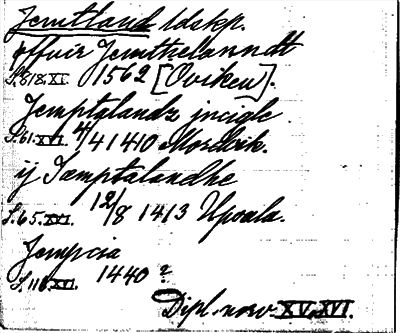 Jemtland ldskp.
offuir Jemthelanndt
S. 818. XI. 1562 [Oviken].
Jemptalandz incigle
S. 61. XVI. 4/4 1410 Mordvik.
ij Jæmptalandhe
S. 65. XVI. 12/8 1413 Upsala.
Jempcia
S. 118. XVI. 1440 ?
Dipl. norv. XV, XVI.